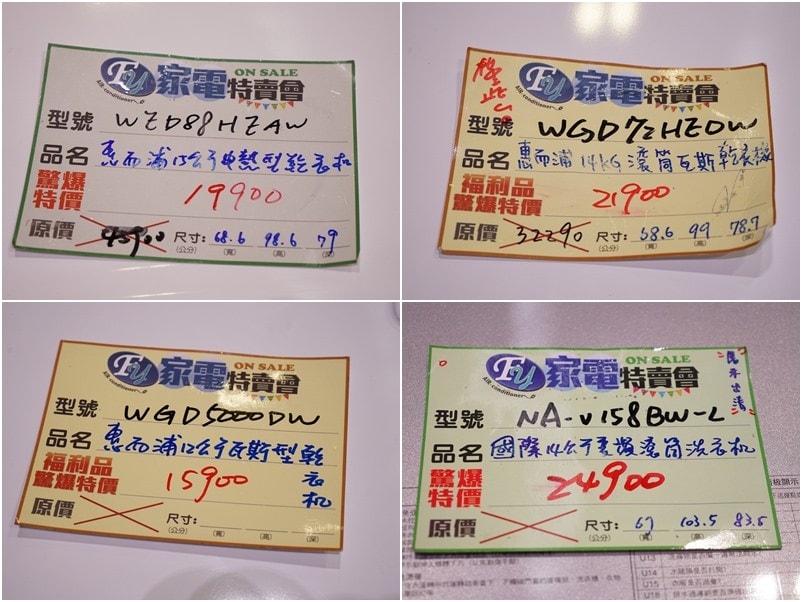 FY 家電特賣會 ON SALE
Air conditioner
型號 WED88HEAW
品名 惠而浦15公斤电熱型乾衣机
驚爆特價 19900
原價 45900 尺寸:(公分) 68.6(寬) 98.6(高) 79(深)
檔此台
FY 家電特賣會 ON SALE
Air conditioner
型號 WGD72HEDW
品名 惠而浦 14KG 滾筒瓦斯乾衣機
福利品驚爆特價 21900
原價 32290 尺寸:(公分) 68.6(寬) 99(高) 78.7(深)
FY 家電特賣會 ON SALE
Air conditioner
型號 WGD5000DW
品名 惠而浦12公斤瓦斯型乾衣机
福利品驚爆特價 15900
原價 尺寸:(公分) (寬) (高) (深)
FY 家電特賣會 ON SALE
Air conditioner
展示出清
型號 NA-V158BW-L
品名 國際14公斤变頻滾筒洗衣机
驚爆特價 24900
原價 尺寸:(公分) 67(寬) 103.5(高) 83.5(深)
U13
U14
U15
U18